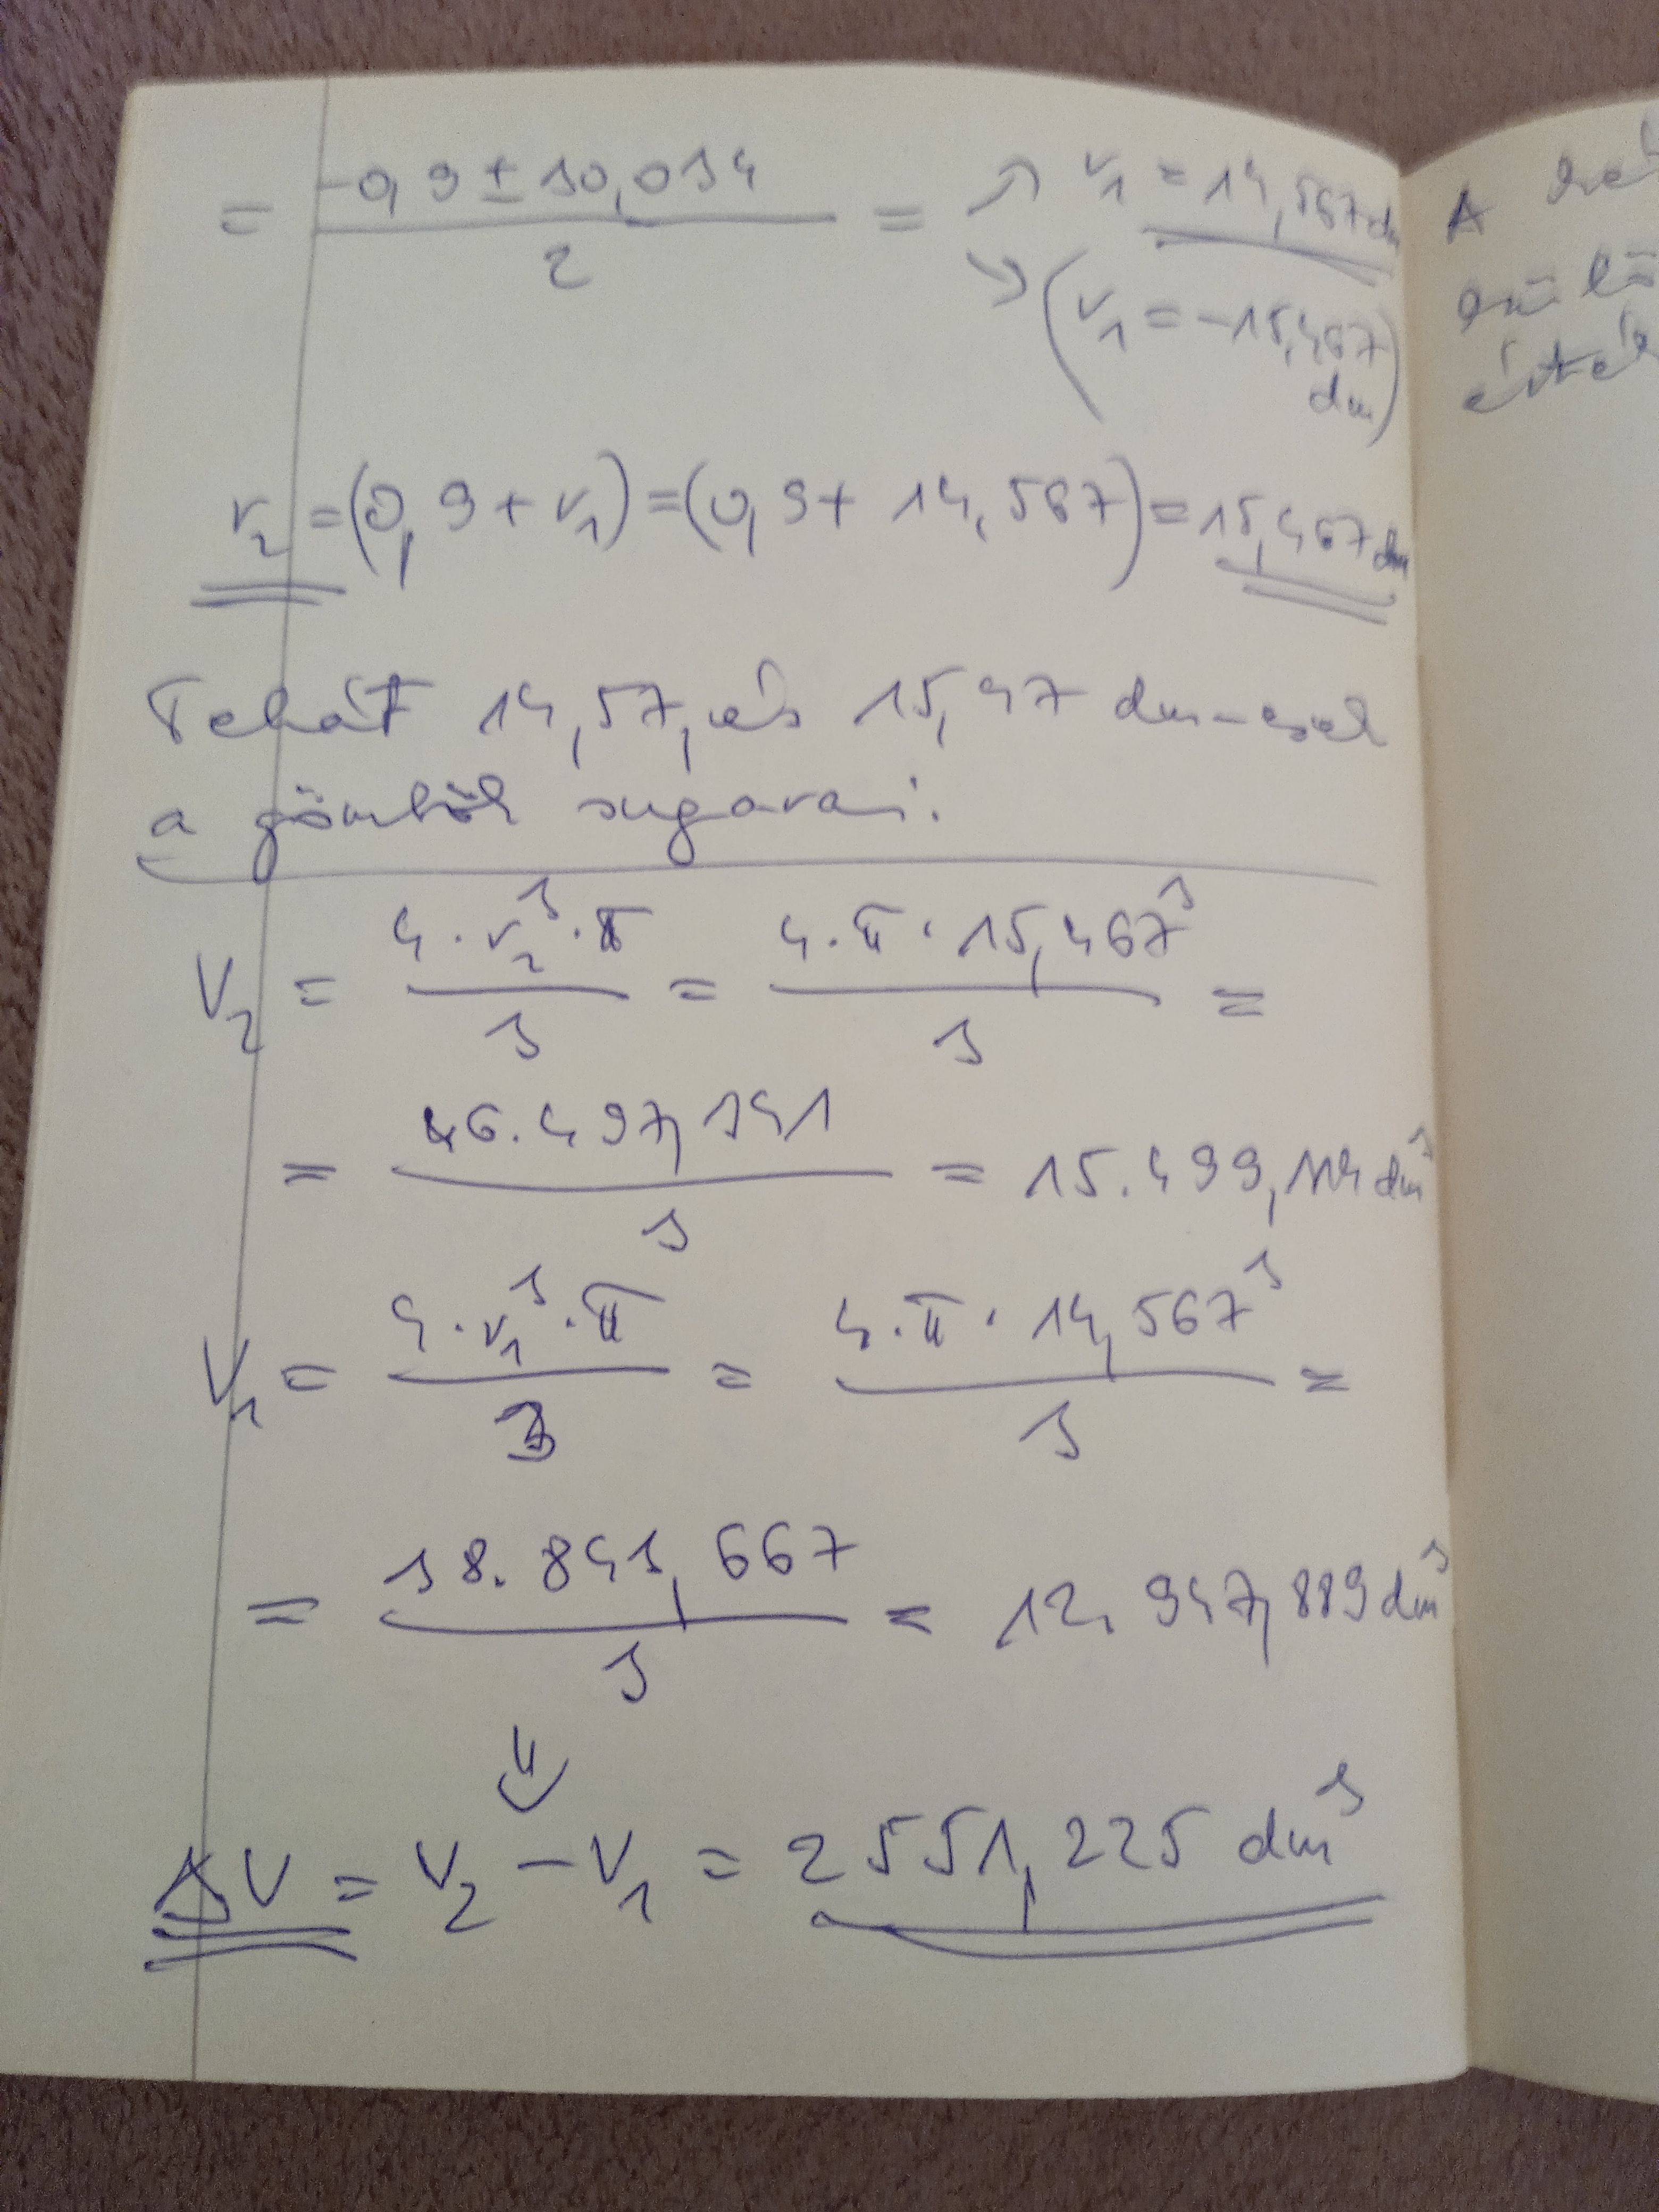 = (-0,9 ± 30,034) / 2 = ↗ r₁ = 14,567 dm
↘ (r₁ = -15,467 dm)
r₂ = (0,9 + r₁) = (0,9 + 14,567) = 15,467 dm
Tehát 14,57, és 15,47 dm-esek
a gömbök sugarai.
V₂ = (4 · r₂³ · π) / 3 = (4 · π · 15,467³) / 3 =
= 46.497,341 / 3 = 15.499,114 dm³
V₁ = (4 · r₁³ · π) / 3 = (4 · π · 14,567³) / 3 =
= 38.843,667 / 3 = 12.947,889 dm³
⇓
ΔV = V₂ - V₁ = 2551,225 dm³
A